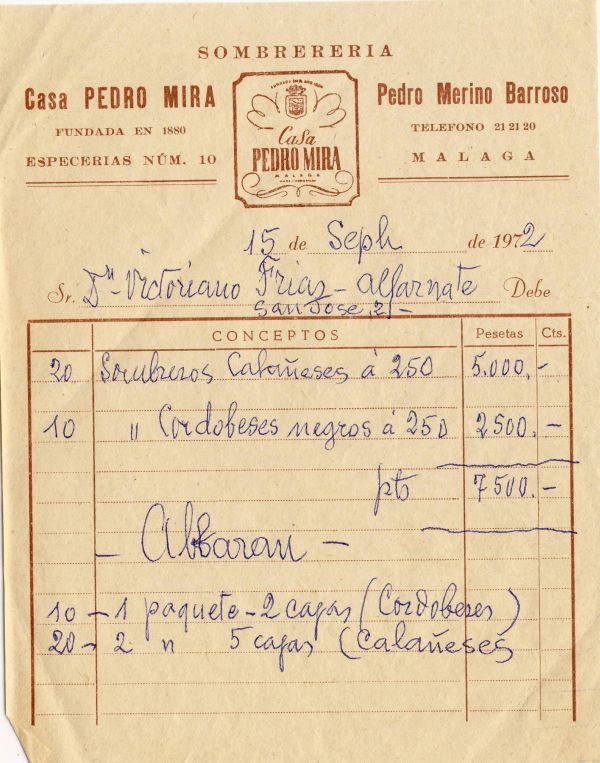 SOMBRERERIA
Casa PEDRO MIRA
FUNDADA EN 1880
ESPECERIAS NÚM. 10
CaSa
PEDRO MIRA
MALAGA
Pedro Merino Barroso
TELEFONO 21 21 20
MALAGA
15 de Seph de 1972
Sr. Dn Victoriano Frias - Alfarnate Debe
San Jose, 2/-
CONCEPTOS Pesetas Cts.
20 Sombreros Calañeses á 250 5.000. -
10 " Cordobeses negros á 250 2500. -
pts 7500. -
10 - 1 paquete - 2 cajas (Cordobeses)
20 - 2 " 5 cajas (Calañeses